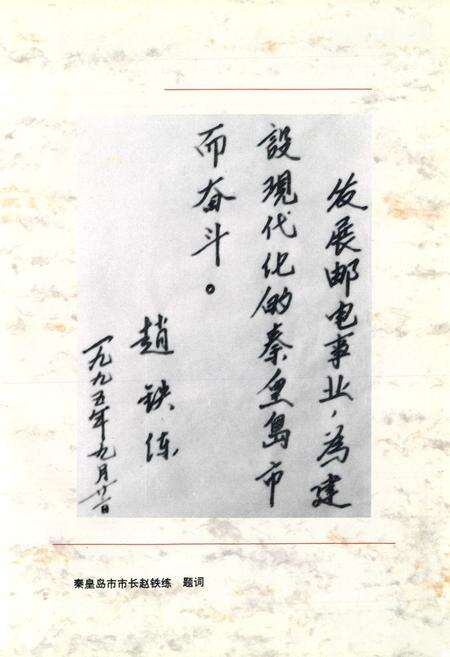 发展邮电事业，為建
設現代化的秦皇島市
而奋斗。
趙铁练
一九九五年九月廿一日
秦皇岛市市长赵铁练 题词